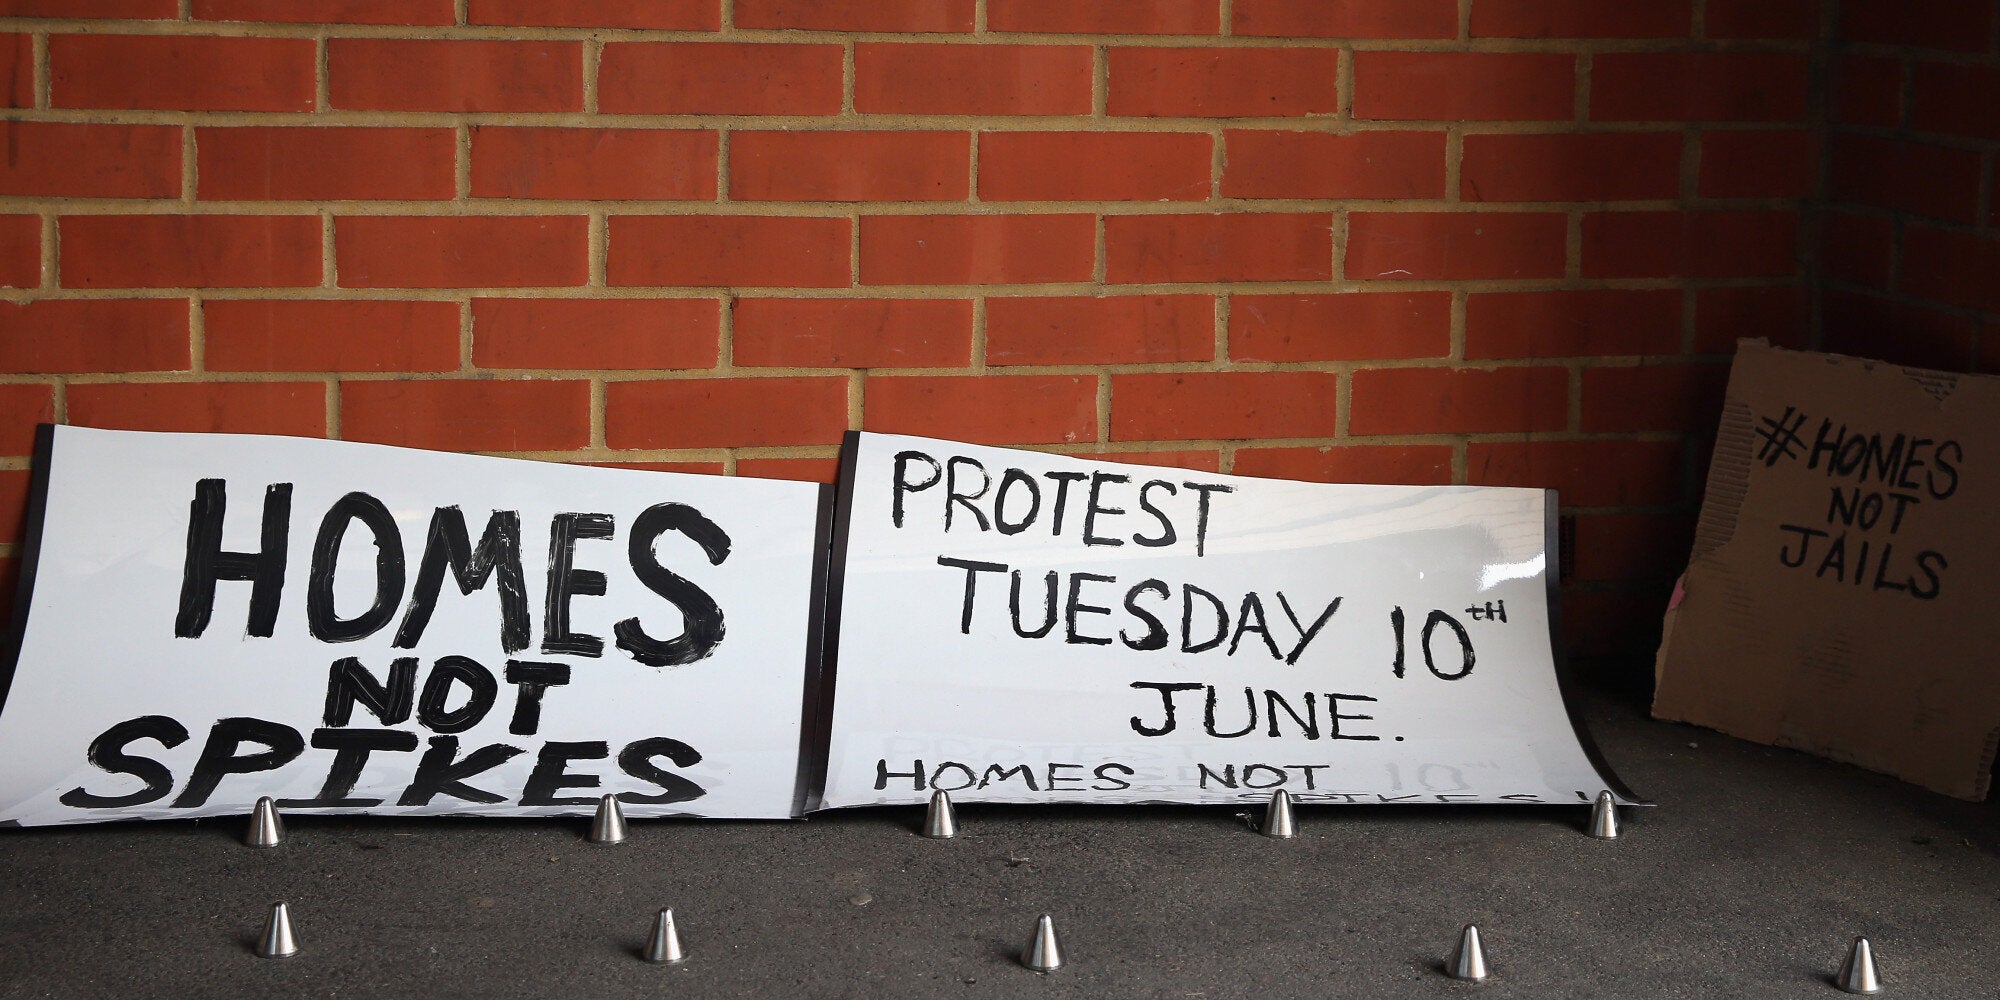 HOMES
NOT
SPIKES
PROTEST
TUESDAY 10TH
JUNE.
HOMES NOT
SPIKES!
#HOMES
NOT
JAILS